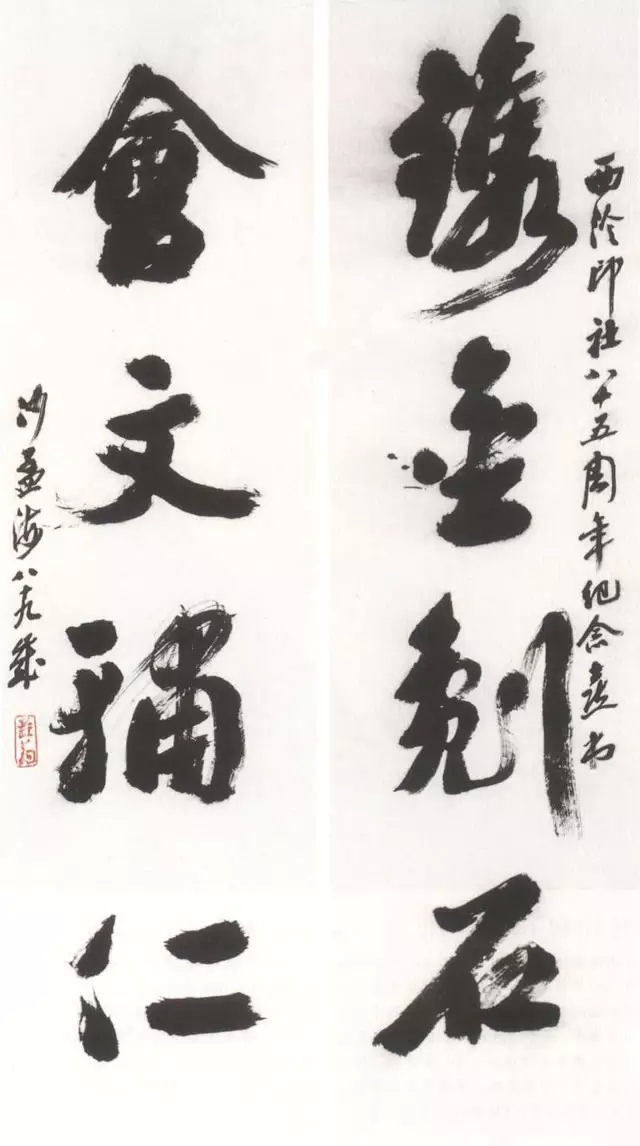 鏤金刻石
西泠印社八十五周年紀念
會文輔仁
沙孟海八十九歲